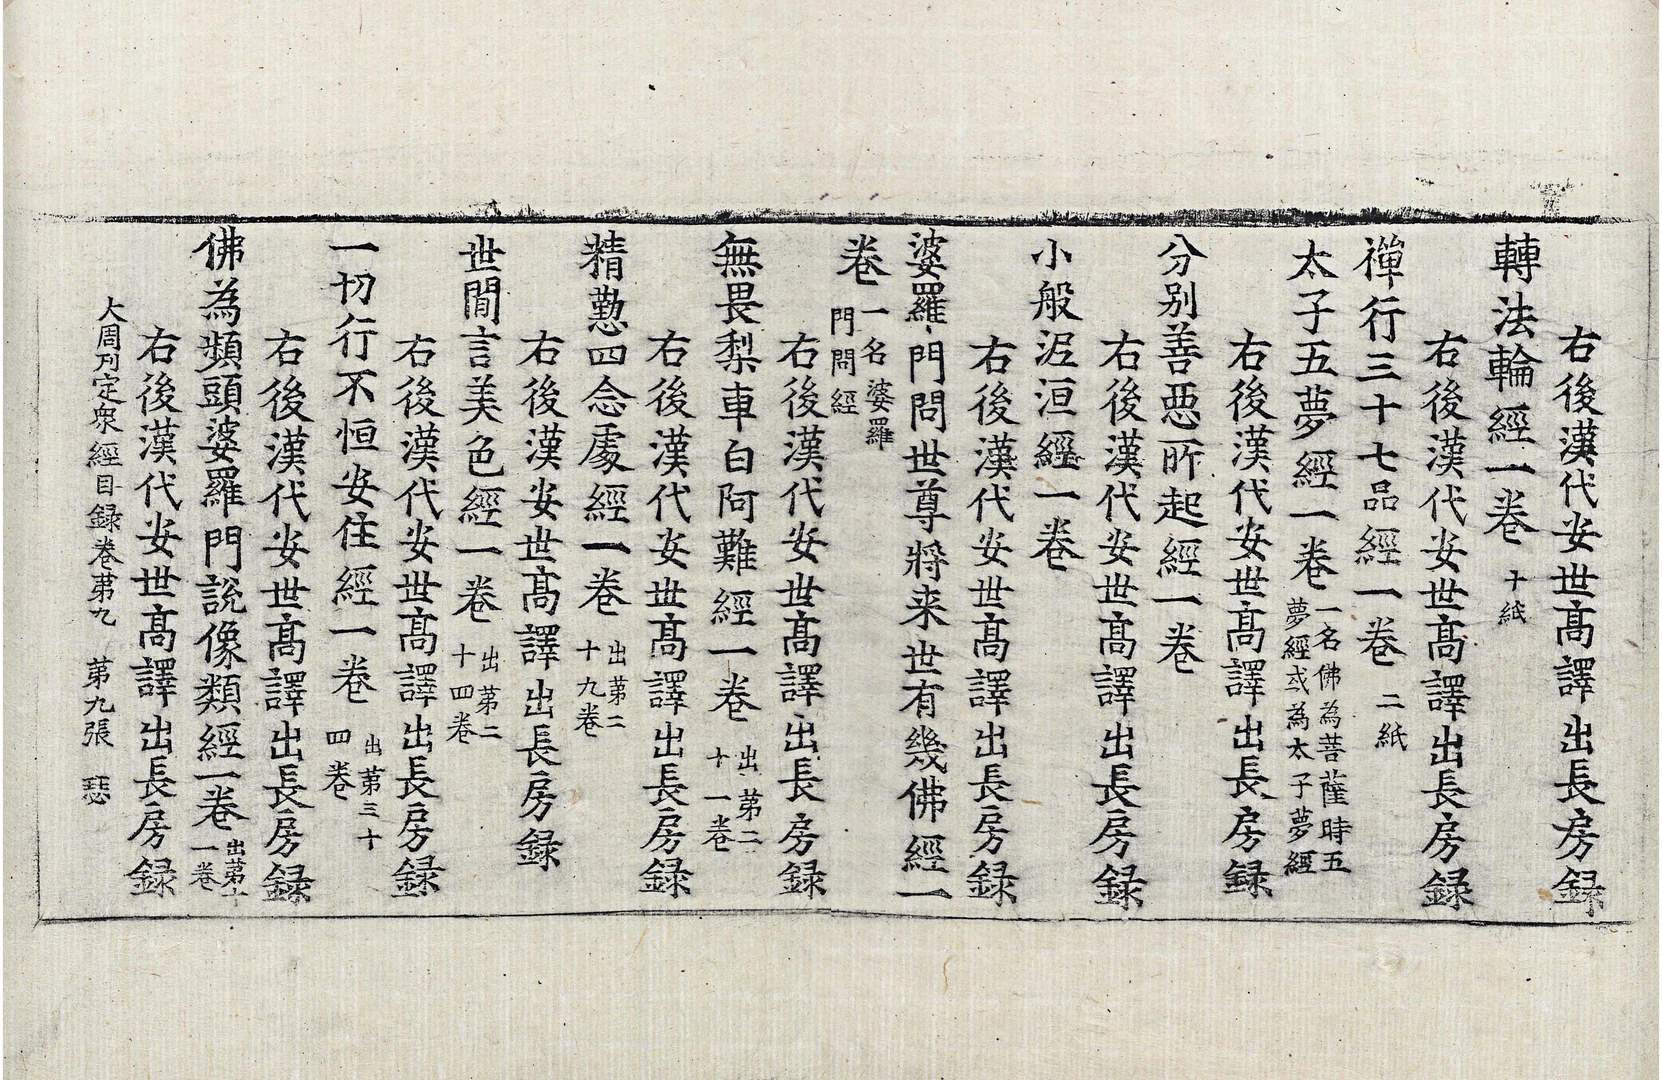 右後漢代安世高譯出長房録
轉法輪經一卷 十紙
右後漢代安世高譯出長房録
禪行三十七品經一卷 二紙
太子五夢經一卷 一名佛為菩薩時五夢經或為太子夢經
右後漢代安世高譯出長房録
分別善惡所起經一卷
右後漢代安世高譯出長房録
小般泥洹經一卷
右後漢代安世高譯出長房録
婆羅門問世尊將来世有幾佛經一
卷 一名婆羅門問經
右後漢代安世高譯出長房録
無畏梨車白阿難經一卷 出第二十一卷
右後漢代安世高譯出長房録
精懃四念處經一卷 出第二十九卷
右後漢安世高譯出長房録
世間言美色經一卷 出第二十四卷
右後漢代安世高譯出長房録
一切行不恒安住經一卷 出第三十四卷
右後漢代安世高譯出長房録
佛為頻頭婆羅門說像類經一卷 出第十一卷
右後漢代安世高譯出長房録
大周刊定衆經目録卷第九 第九張 瑟